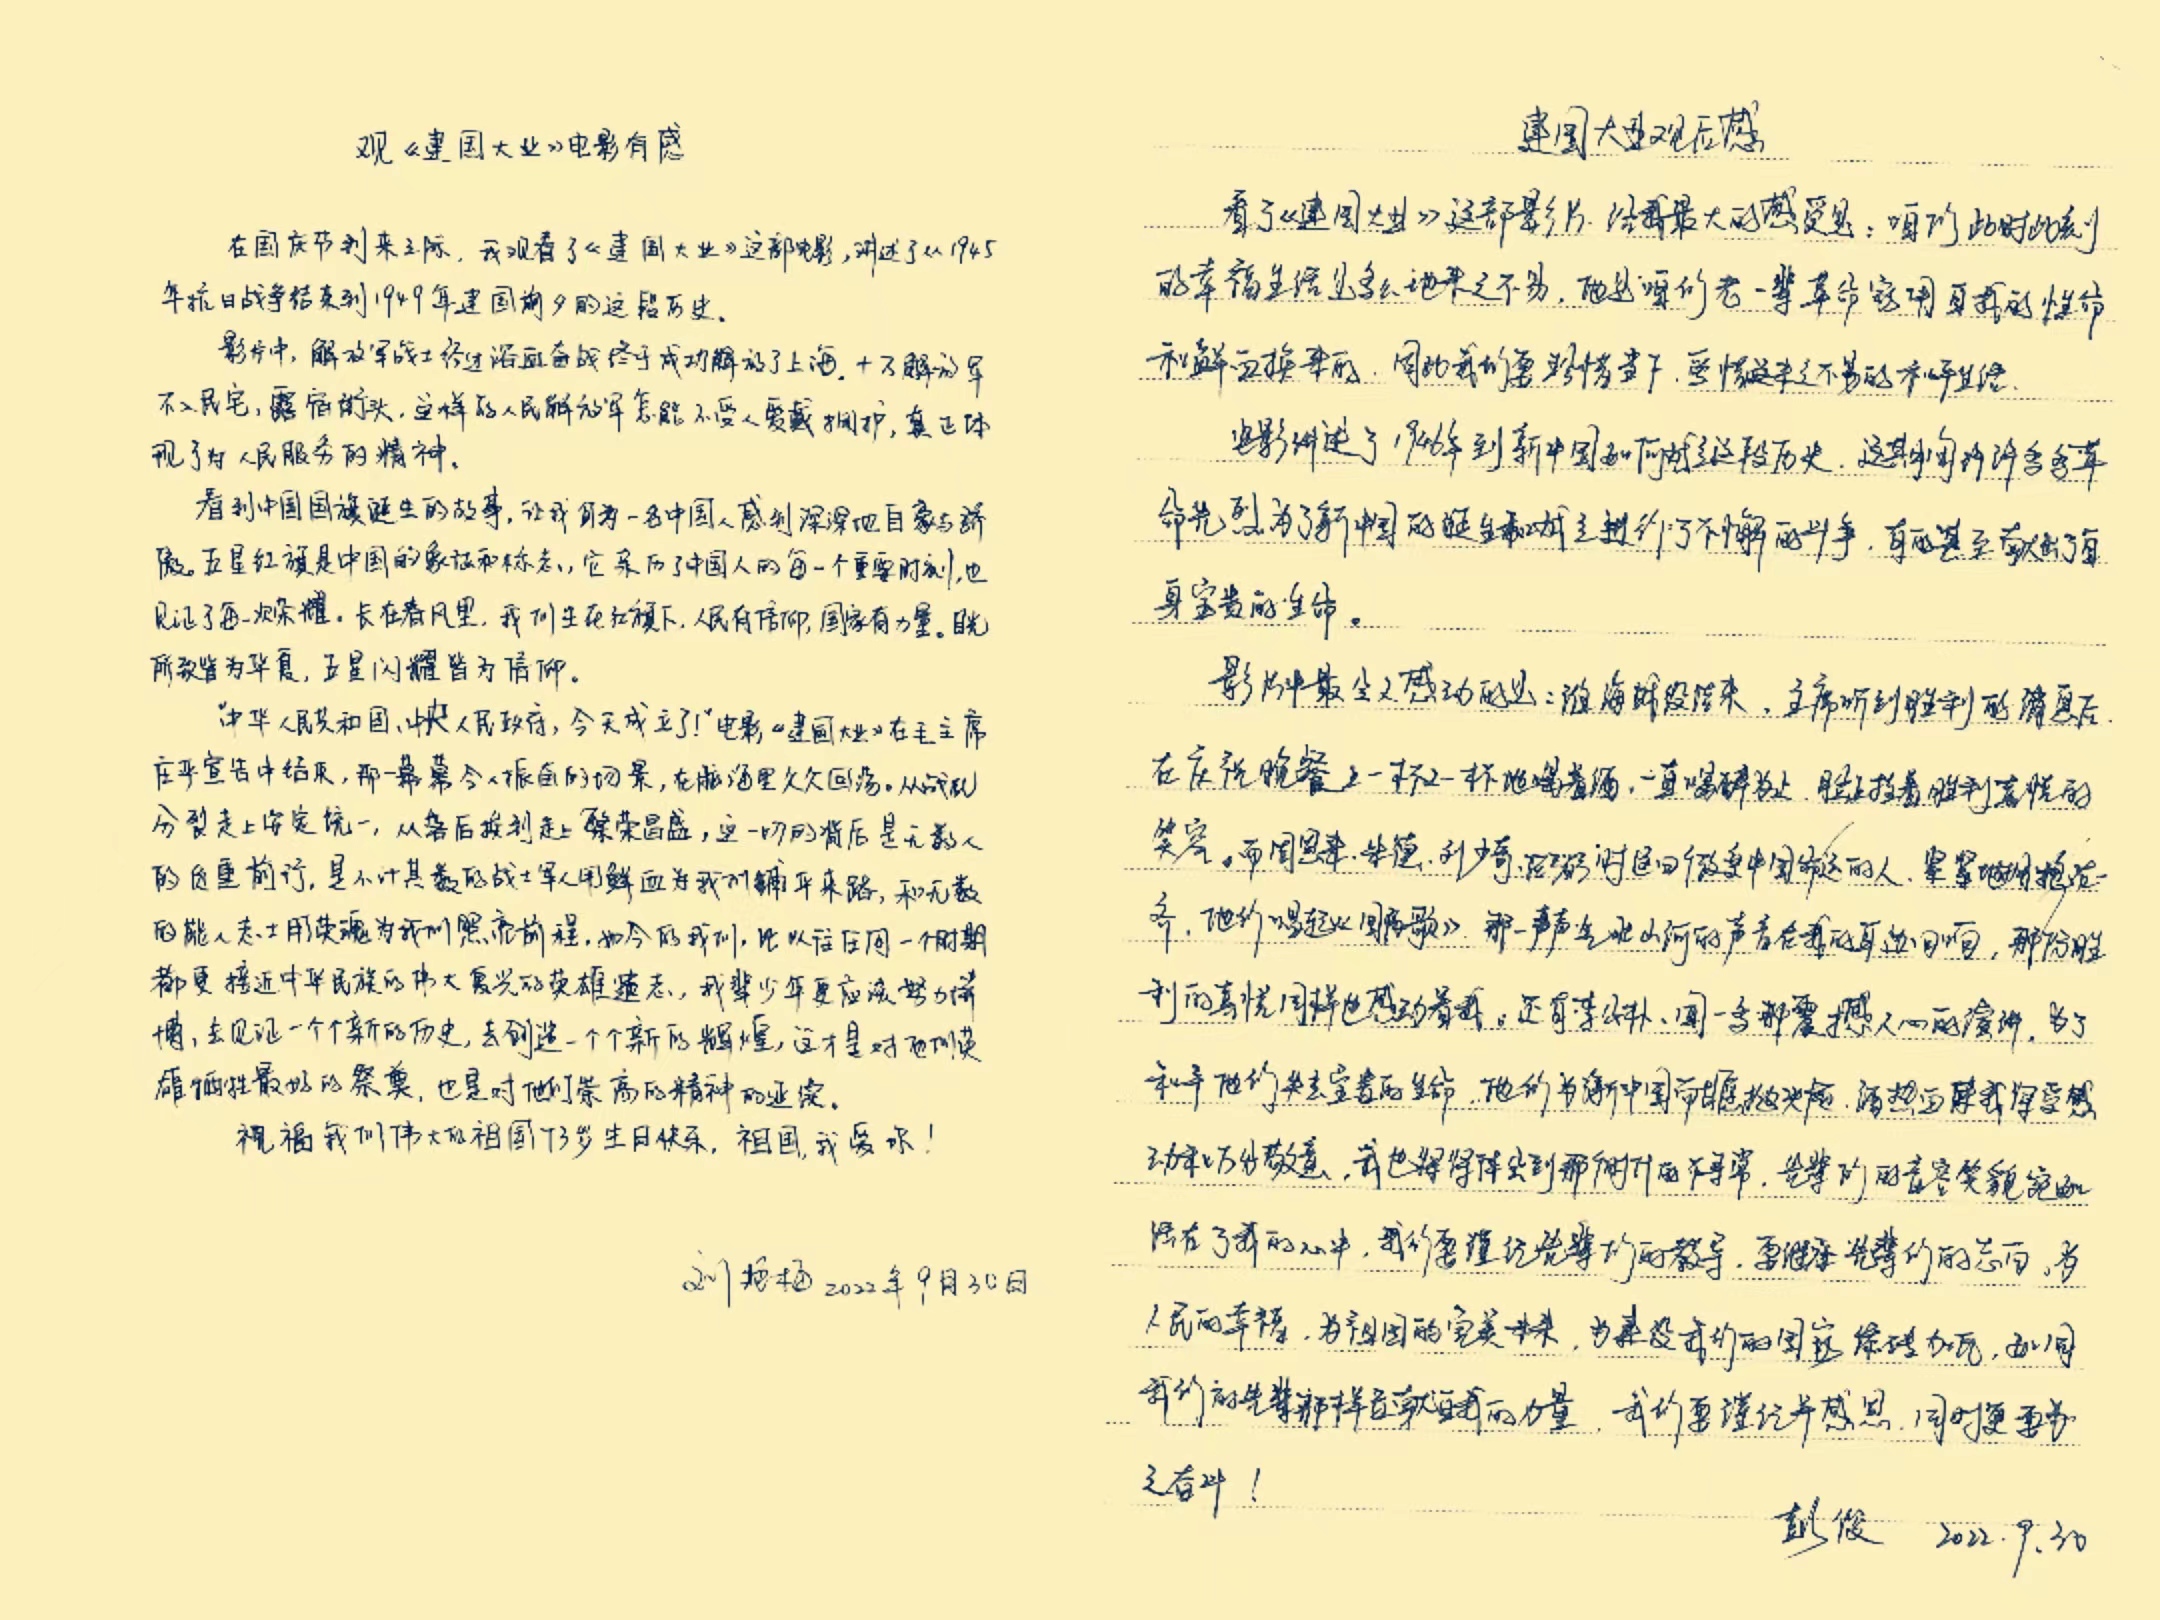 观《建国大业》电影有感
在国庆节到来之际，我观看了《建国大业》这部电影，讲述了从1945
年抗日战争结束到1949年建国前夕的这段历史。
影片中，解放军战士经过浴血奋战终于成功解放了上海。十万解放军
不入民宅，露宿街头，这样的人民解放军怎能不受人爱戴拥护，真正体
现了为人民服务的精神。
看到中国国旗诞生的故事，让我身为一名中国人感到深深地自豪与骄
傲。五星红旗是中国的象征和标志，它亲历了中国人的每一个重要时刻，也
见证了每一次荣耀。长在春风里，我们生在红旗下，人民有信仰，国家有力量。目光
所致皆为华夏，五星闪耀皆为信仰。
“中华人民共和国，中央人民政府，今天成立了！”电影《建国大业》在毛主席
庄严宣告中结束，那一幕幕令人振奋的场景，在脑海里久久回荡。从战乱
分裂走上安定统一，从落后挨打走上繁荣昌盛，这一切的背后是无数人
的负重前行，是不计其数的战士军人用鲜血为我们铺平来路，和无数
的能人志士用英魂为我们照亮前程，如今的我们，比以往任何一个时期
都更接近中华民族的伟大复兴的英雄遗志，我辈少年更应该努力拼
搏，去见证一个个新的历史，去创造一个个新的辉煌，这才是对他们英
雄牺牲最好的祭奠，也是对他们崇高的精神的延续。
祝福我们伟大的祖国73岁生日快乐，祖国，我爱你！
刘艳梅 2022年9月30日
建国大业观后感
看了《建国大业》这部影片，给我最大的感受是：咱们此时此刻
的幸福生活是多么地来之不易，他是咱们老一辈革命家用自我的性命
和鲜血换来的，因此我们要珍惜当下，爱惜这来之不易的和平生活。
电影讲述了1946年到新中国如何成立这段历史，这其中间许许多多革
命先烈为了新中国的诞生和成立进行了不懈的斗争，有的甚至献出了自
身宝贵的生命。
影片中最令人感动的是：淮海战役结束，主席听到胜利的消息后，
在庆祝晚餐上一杯又一杯地喝着酒，一直喝醉为止，脸上挂着胜利喜悦的
笑容。而周恩来、朱德、刘少奇、任弼时这四个改变中国命运的人，紧紧地拥抱在一
齐，他们唱起《国际歌》，那一声声气壮山河的声音在我的耳边回响，那份胜
利的喜悦同样也感动着我。还有李公朴、闻一多那震撼人心的演讲，为了
和平他们失去宝贵的生命，他们为新中国而抛头颅，洒热血
动和万分敬意，我也将得体会到那个时代的不寻常，先辈们的音容笑貌宛如
活在了我的心中，我们要谨记先辈们的教导，要继承先辈们的志向，为
人民的幸福，为祖国的完美未来，为建设我们的国家添砖加瓦，如同
我们的先辈那样贡献自我的力量，我们要谨记并感恩，同时更要为
之奋斗！
彭俊 2022.9.30